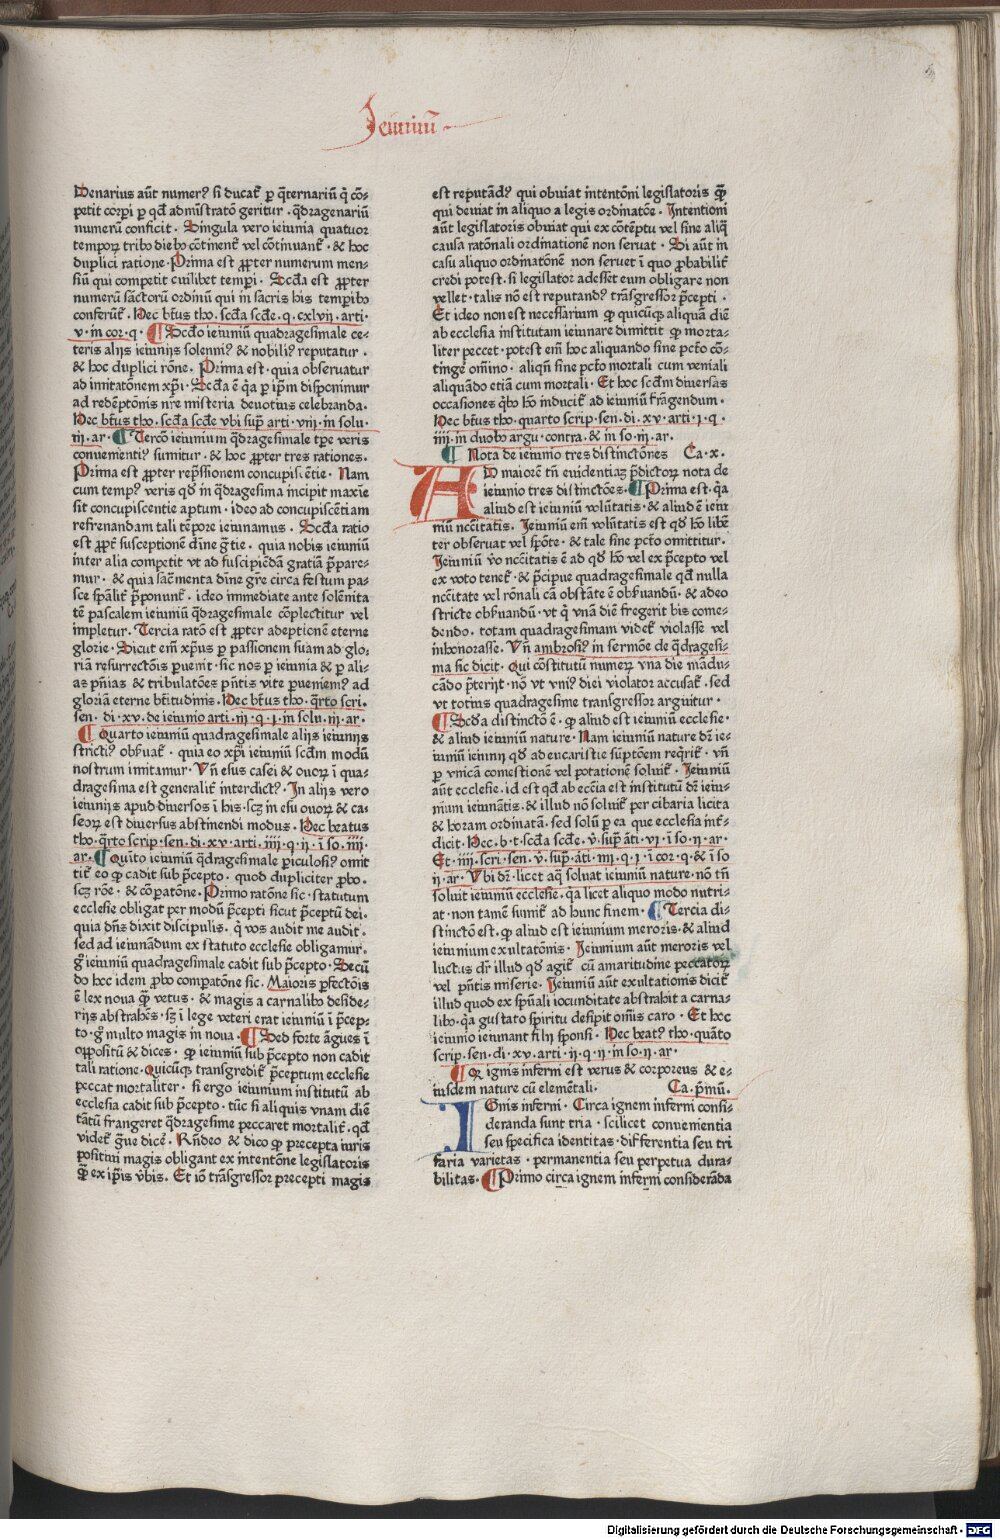 Ieiuniū
Denarius aūt numerꝰ si ducat᷑ ꝑ q̄ternariū q̇ cō-
petit corꝑi ꝑ qđ admīstratō geritur · q̄dragenariū
numerū conficit . Singula vero ieiunia quatuor
temporꝝ tribꝰ diebꝰ cōtinent᷑ vel cōtinuant᷑ · & hoc
duplici ratione · Prima est ꝓpter numerum men-
siū qui competit cuilibet tempi . Scđa est ꝓpter
numerū sāctorū ordinū qui in sacris his tempibꝰ
conferūt᷑ . Hec btūs tho. scđa scđe . q. cxlvij . arti .
v · in cor · q · ¶ Scđo ieiuniū quadragesimale ce-
teris alijs ieiunijs solenniꝰ & nobiliꝰ reputatur .
& hoc duplici rōne . Prima est · quia obseruatur
ad imitatōnem xp̄i · Scđa ē q̄a ꝑ ip̄m disponimur
ad redēptōnis nr̄e misteria deuotius celebranda .
Hec btūs tho . scđa scđe vbi sup̄ arti · viij · in solu ·
iij · ar · ¶ Tercō ieiunium q̄dragesimale tpe veris
conuenientiꝰ sumitur · & hoc ꝓpter tres rationes .
Prima est ꝓpter rep̄ssionem concupiscētie . Nam
cum tempꝰ veris qđ in q̄dragesima incipit maxīe
sit concupiscentie aptum . ideo ad concupiscētiam
refrenandam tali tēpore ieiunamus . Scđa ratio
est ꝓpt᷑ susceptionē diīne gr̄tie . quia nobis ieiuniū
inter alia competit vt ad suscipiēdā gratiā p̄pare-
mur . & quia sac̄menta diīne gr̄e circa festum pa-
sce sp̄alit᷑ p̄ponunt᷑ . ideo immediate ante solēnita
tē pascalem ieiuniū q̄dragesimale cōplectitur vel
impletur . Tercia ratō est ꝓpter adeptionē eterne
glorie · Sicut em̄ xp̄us ꝑ passionem suam ad glo-
riā resurrectōis ꝑuenit · sic nos ꝑ ieiunia & ꝑ ali-
as pn̄ias & tribulatōes pn̄tis vite ꝑueniemꝰ ad
gloriā eterne btītudinis . Hec btūs tho . q̄rto scri .
sen . di · xv · de ieiunio arti · iij · q · j · in solu · iij · ar .
¶ Quarto ieiuniū quadragesimale alijs ieiunijs
strictiꝰ obẜuat᷑ . quia eo xp̄i ieiuniū scđm modū
nostrum imitamur . Vn̄ esus casei & ouorꝝ ī qua-
dragesima est generalit᷑ interdictꝰ . In alijs vero
ieiunijs apud diuersos ī his · scꝫ in esu ouorꝝ & ca-
seorꝝ est diuersus abstinendi modus . Hec beatus
tho · q̄rto scrip · sen · di · xv · arti · iiij · q · ij · ī so · iiij ·
ar · ¶ Quīto ieiuniū q̄dragesimale ꝑiculosiꝰ omit
tit᷑ eo ꝙ cadit sub p̄cepto . quod dupliciter ꝓbo .
scꝫ rōe . & cōꝑatōne . Primo ratōne sic · statutum
ecclesie obligat per modū p̄cepti sicut p̄ceptū dei .
quia dn̄s dixit discipulis . q̇ vos audit me audit .
sed ad ieiunādum ex statuto ecclesie obligamur .
gͦ ieiuniū quadragesimale cadit sub p̄cepto . Secū
do hoc idem ꝓbo comꝑatōne sic . Maioris ꝑfectōis
ē lex noua q̄ꝫ vetus . & magis a carnalibꝰ deside-
rijs abstrahēs · sꝫ ī lege veteri erat ieiuniū ī p̄cep-
to · gͦ multo magis in noua · ¶ Sed forte āgues ī
oppositū & dices . ꝙ ieiuniū sub p̄cepto non cadit
tali ratione . Quicūqꝫ transgredit᷑ p̄ceptum ecclesie
peccat mortaliter . si ergo ieiunium institutū ab
ecclesia cadit sub p̄cepto . tūc si aliquis vnam diē
tātū frangeret q̄dragesime peccaret mortalit᷑ . qđ
videt᷑ gͣue dicē . Rn̄deo & dico ꝙ precepta iuris
positiui magis obligant ex intentōne legislatoris
q̄ꝫ ex ip̄is v̄bis . Et iō trāsgressor precepti magis
est reputādꝰ qui obuiat intentōni legislatoris q̄ꝫ
qui deuiat in aliquo a legis ordinatōe . Intentioni
aūt legislatoris obuiat qui ex cōtēptu vel sine aliq̄
causa ratōnali ordinationē non seruat . Si aūt in
casu aliquo ordinatōnē non seruet ī quo ꝓbabilit᷑
credi potest . si legislator adesset eum obligare non
vellet . talis nō est reputandꝰ trāsgressor p̄cepti .
Et ideo non est necessarium ꝙ quicūqꝫ aliquā diē
ab ecclesia institutam ieiunare dimittit ꝙ morta-
liter peccet · potest em̄ hoc aliquando sine pctō cō-
tingē om̄ino . aliqn̄ sine pctō mortali cum veniali
aliquādo etiā cum mortali . Et hoc scđm diuersas
occasiones q̇bꝰ hō inducit᷑ ad ieiuniū frāgendum .
Hec btūs tho . quarto scrip . sen . di . xv . arti . j . q .
iiij . in duobꝰ argu . contra . & in so . iij . ar .
¶ Nota de ieiunio tres distinctōnes Ca . x .
AD maiorē tn̄ euidentiaꝫ p̄dictorꝝ nota de
ieiunio tres distinctōes . ¶ Prima est . q̄a
aliud est ieiuniū volūtatis . & aliud ē ieiu
niū nccītatis . Ieiuniū em̄ volūtatis est qđ hō libēt
ter obseruat vel spōte . & tale sine pctō omittitur .
Ieiuniū v̄o nccītatis ē ad qđ hō vel ex p̄cepto vel
ex voto tenet᷑ . & p̄cipue quadragesimale qđ nulla
nccītate vel rōnali cā obstāte ē obẜuandū . & adeo
stricte obẜuandū . vt q̇ vnā diē fregerit bis come-
dendo . totam quadragesimam videt᷑ violasse vel
inhonorasse . Vn̄ ambrosiꝰ in sermōe de q̄dragesi-
ma sic dicit . Qui cōstitutū numerꝝ vna die mādu-
cādo p̄terijt . nō vt vniꝰ diei violator accusat᷑ . sed
vt totius quadragesime transgressor arguitur .
¶ Scđa distinctō ē . ꝙ aliud est ieiuniū ecclesie .
& aliud ieiuniū nature . Nam ieiuniū nature dr̄ ie-
iuniū ieiunij qđ ad eucaristie sūptōem req̇rit᷑ . vn̄
ꝑ vnicā comestionē vel potationē soluit᷑ . Ieiuniū
aūt ecclesie . id est qđ ab eccīa est institutū dr̄ ieiu-
nium ieiunātis . & illud nō soluit᷑ per cibaria licita
& horam ordinatā . sed solū ꝑ ea que ecclesia int᷑-
dicit . Hec . b . t . scđa scđe . v̄ . sup̄ . āti . vj . ī so . ij . ar .
Et . iiij . scri . sen . v̄ . sup̄ . āti . iiij . q . j . ī cor . q . & ī so
ij . ar . Vbi dr̄ . licet aq̄ soluat ieiuniū nature . nō tn̄
soluit ieiuniū ecclesie . q̄a licet aliquo modo nutri-
at . non tamē sumit᷑ ad hunc finem . ¶ Tercia di-
stinctō est . ꝙ aliud est ieiunium meroris . & aliud
ieiunium exultatōnis . Ieiunium aūt meroris vel
luctus dr̄ illud qđ agit᷑ cū amaritudine peccatorꝝ
vel pn̄tis miserie . Ieiuniū aūt exultationis dicit᷑
illud quod ex sp̄uali iocunditate abstrahit a carna-
libꝰ . q̄a gustato spiritu desipit om̄is caro . Et hoc
ieiunio ieiunant filij sponsi . Hec beatꝰ tho . quāto
scrip . sen . di . xv . arti . ij . q . ij . in so . ij . ar .
¶ Qꝛ ignis inferni est verus & corporeus & e-
iusdem nature cū elemētali . Ca . p̄mū .
IGnis inferni . Circa ignem inferni consi-
deranda sunt tria . scilicet conuenientia
seu specifica identitas . differentia seu tri
faria varietas . permanentia seu perpetua dura-
bilitas . ¶ Primo circa ignem inferni considerāda
Digitalisierung gefördert durch die Deutsche Forschungsgemeinschaft - DFG